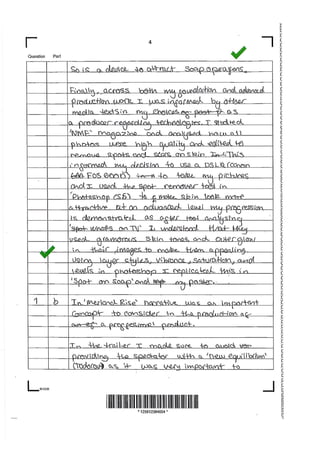 4
Question Part
So is a device to attract soap operas.
Finally, across both my foundation and advanced
production work I was informed by other
media texts in my choices as
a producer regarding technologies. I studied
'NME' magazine and analysed how all
photos were high quality and edited to
remove spots and scars on skin This
informed my decision to use a DSLR (canon
EOS 600D) to take my pictures
and I used the spot remover tool in
'Photoshop CS5' to make skin look more
attractive at an advanced level my progression
is demonstrated as after analysing
'Spot what's on TV' I understood that they
used glamorous skin tones and outer glow
in their images to make them appealing.
Using layer styles, vibrance, saturation, and
levels in photoshop I replicated this in
'Spot on Soap' and my poster.
1 b In 'Merland Rise' narrative was an important
concept to consider in the production
a professional product.
In the trailer I made sure to avoid
providing the spectator with a 'new equilibrium'
(Todorov) as it was very important to